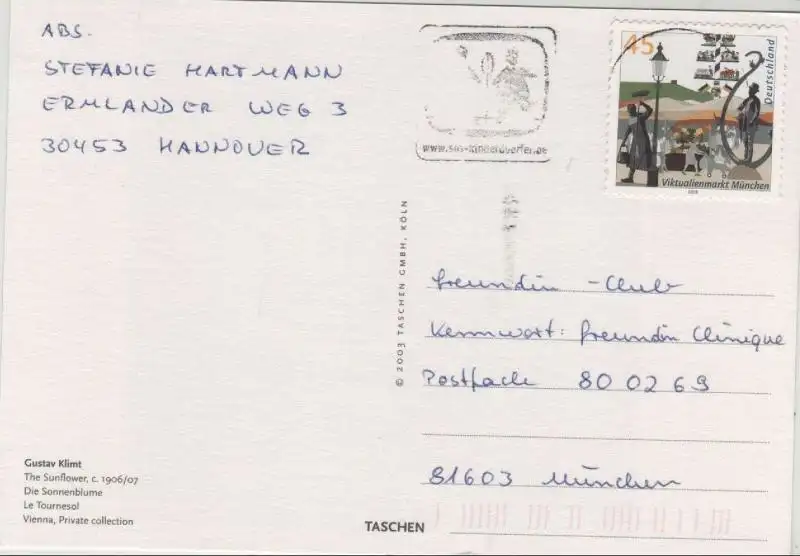 ABS.
STEFANIE HARTMANN
ERMLANDER WEG 3
30453 HANNOVER
www.sos-kinderdoerfer.de
45
Deutschland
Viktualienmarkt München
© 2003 TASCHEN GMBH, KÖLN
freundin - Club
Kennwort: freundin Clinique
Postfach 80 02 69
81603 München
Gustav Klimt
The Sunflower, c. 1906/07
Die Sonnenblume
Le Tournesol
Vienna, Private collection
TASCHEN